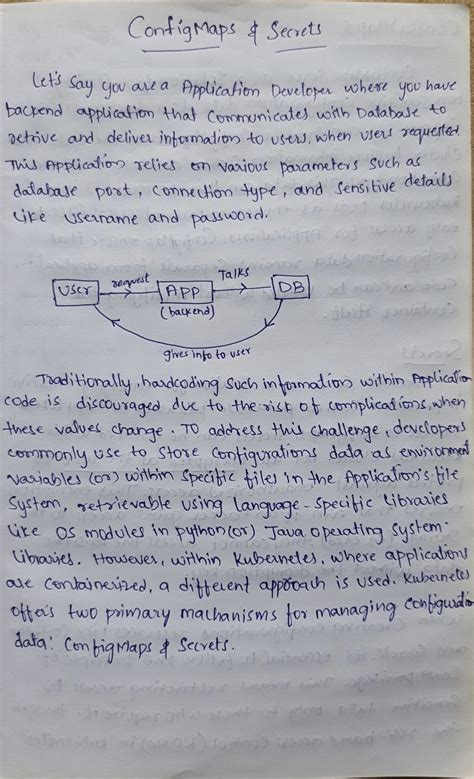 ConfigMaps & Secrets
Let's say you are a Application Developer where you have
backend application that communicates with Database to
retrive and deliver information to users, when users requested.
This Application relies on various parameters such as
database port, connection type, and sensitive details
like username and password.
User request APP Talks DB
(backend)
gives info to user
Traditionally, hardcoding such information within Application
code is discouraged due to the risk of complications, when
these values change. To address this challenge, developers
commonly use to store configurations data as environment
variables (or) within specific files in the Application's file
system, retrievable using language-specific libraries
like OS modules in python (or) Java operating system
libraries. However, within Kubernetes, where applications
are containerized, a different approach is used. Kubernetes
offers two primary machanisms for managing configuration
data: ConfigMaps & Secrets.